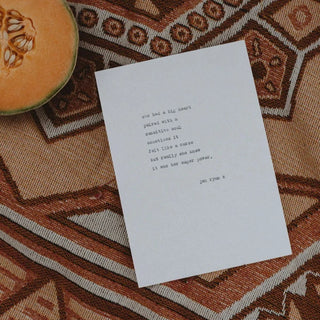 she had a big heart
paired with a
sensitive soul
sometimes it
felt like a curse
but really she knew
it was her super power.